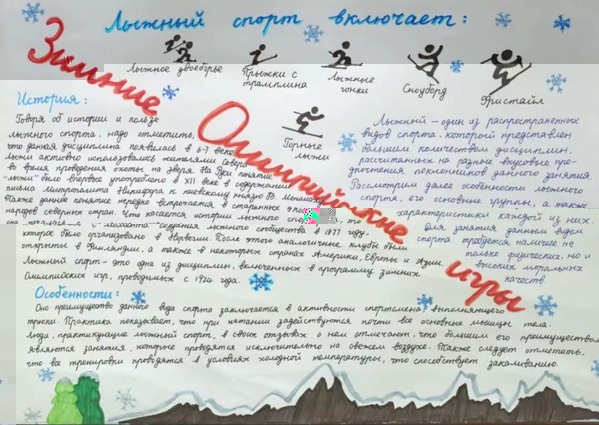 Лыжный спорт включает:
Лыжное двоеборье
Прыжки с
трамплина
Лыжные
гонки
Сноуборд
Фристайл
Горные
лыжи
Зимние Олимпийские игры
История:
Говоря об истории и пользе
лыжного спорта, надо отметить,
что данная дисциплина появилась в 6-7 веке
лыжи активно использовались жителями Севера
во время проведения охоты на зверя. На Руси понятие
"лыжи" было впервые употреблено в XII веке в содержании
письма Митрополита Никифора к киевскому князю В. Мономаху
Также данное понятие нередко встречается в старинных
народов северных стран. Что касается истории лыжного
создания лыжного сообщества в 1877 году,
которое было организовано в Норвегии. После этого аналогичные клубы были
открыты в Финляндии, а также в некоторых странах Америки, Европы и Азии.
Лыжный спорт - это одна из дисциплин, включенных в программу зимних
Олимпийских игр, проводимых с 1924 года.
Лыжный - один из распространенных
видов спорта, который представлен
большим количеством дисциплин,
рассчитанных на разные вкусовые пред-
почтения поклонников данного занятия.
Рассмотрим далее особенности лыжного
спорта, его основные группы, а также
характеристики каждой из них.
Для занятия данным видом
спорта требуется наличие не
только физических, но и
высоких моральных
качеств.
Особенности:
Оно преимущество данного вида спорта заключается в активности спортсмена, выполняющего
трюки. Практика показывает, что при катании задействуются почти все основные мышцы тела.
Люди, практикующие лыжный спорт, в своих отзывах о нем отмечают, что большим его преимуществом
являются занятия, которые проводятся исключительно на свежем воздухе. Также следует отметить,
что все тренировки проводятся в условиях холодной температуры, что способствует закаливанию.